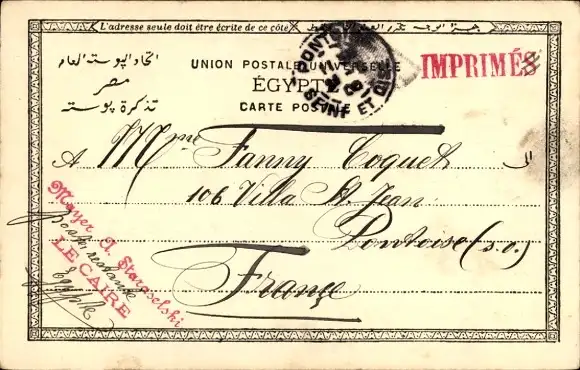 L'adresse seule doit être écrite de ce côté
اتحاد البوسته العام
مصر
تذكرة بوسته
UNION POSTALE UNIVERSELLE
ÉGYPTE
CARTE POSTALE
IMPRIMÉS
PONTOISE
SEINE ET
A Mme Fanny Coquet الى
106 Villa St Jean
Pontoise (s.o.)
France
Mayer J. Staraselski
Poste restante
LE CAIRE
Egypte